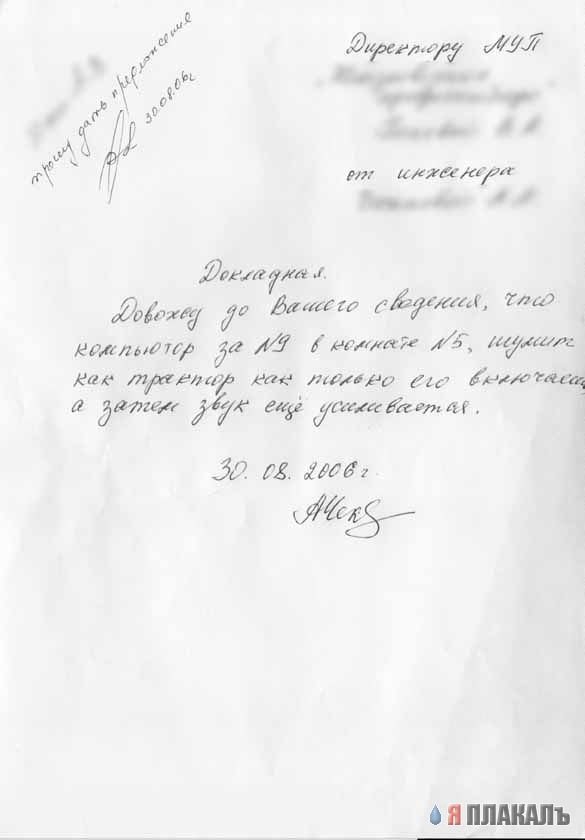 прошу дать предложения
30.08.06г
Директору МУП
от инженера
Докладная.
Довожу до Вашего сведения, что
компьютор за №9 в комнате №5, шумит
как трактор как только его включаеш,
а затем звук ещё усиливается.
30.08.2006г.
Я ПЛАКАЛЪ